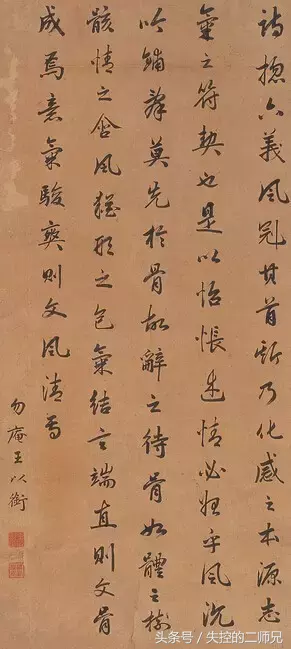 詩揔六義風冠其首斯乃化感之本源志
氣之符契也是以怊悵述情必始乎風沉
吟鋪辭莫先於骨故辭之待骨如體之樹
骸情之含風猶形之包氣結言端直則文骨
成焉意氣駿爽則文風清焉
勿庵王以銜
头条号 / 失控的二师兄